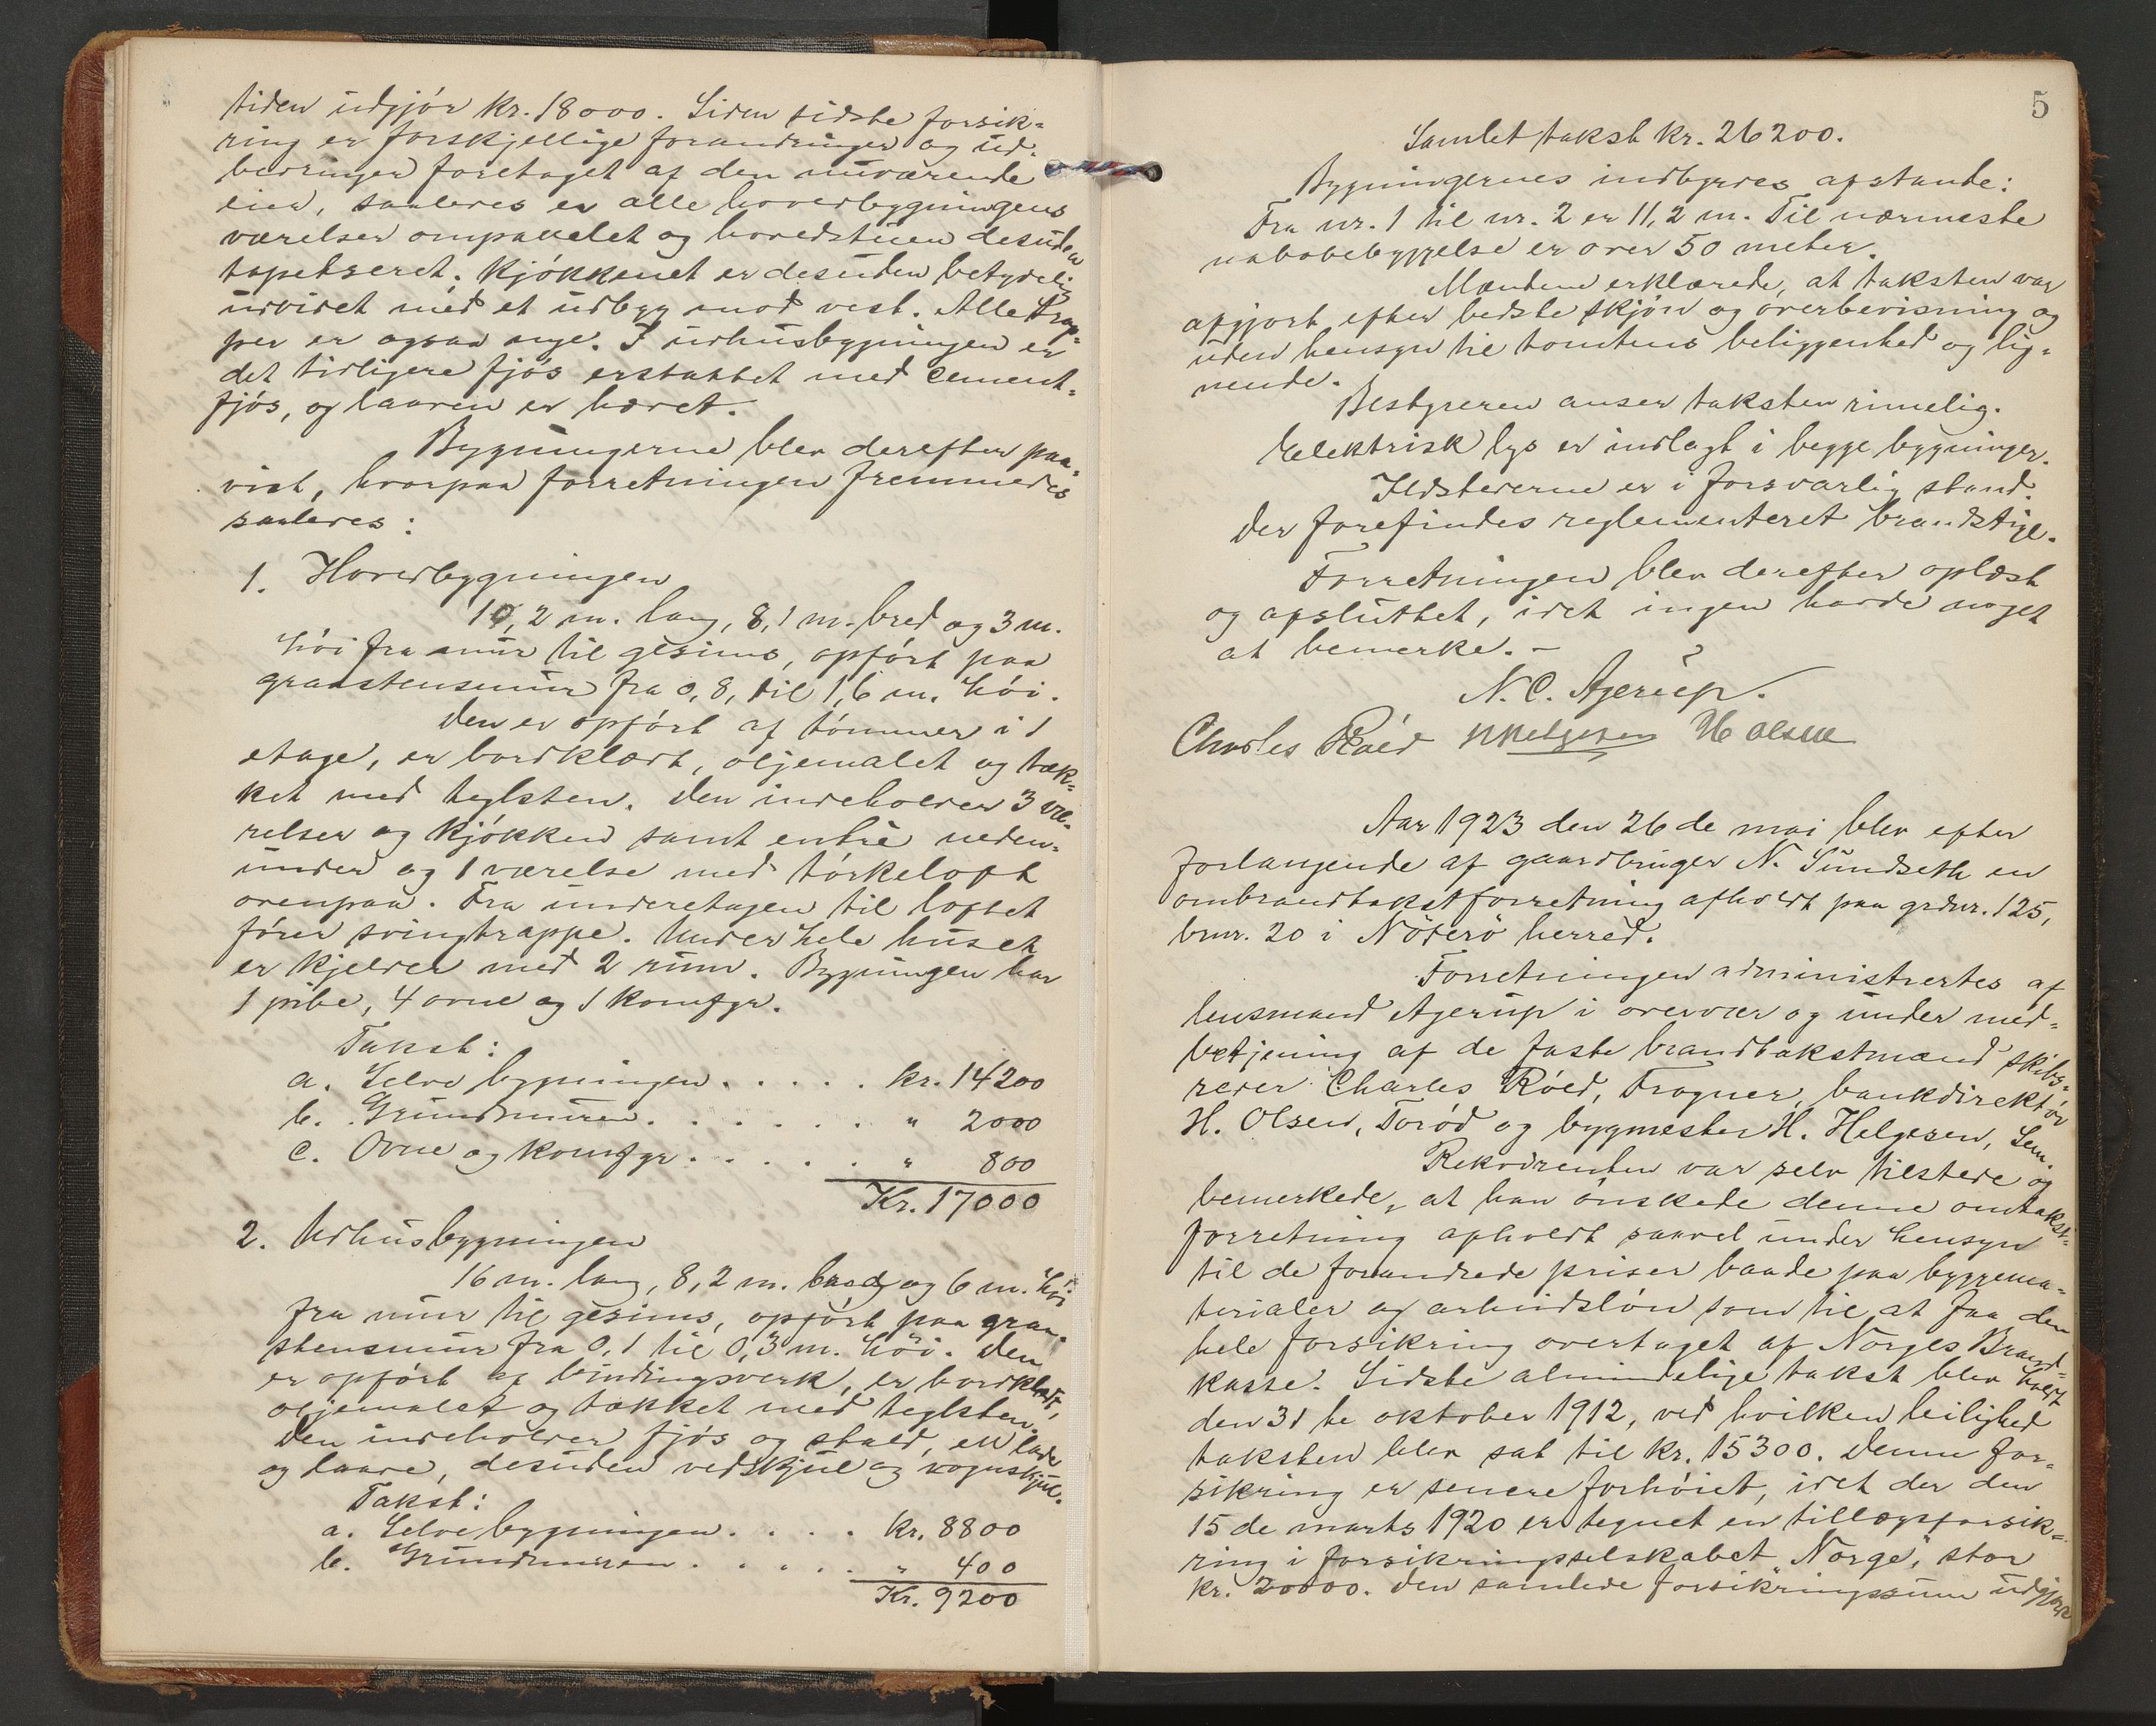 tiden udgjør kr. 18000. Siden sidste forsik=
ring er forskjellige forandringer og ud=
bedringer foretaget af den nuværende
eier, saaledes er alle hovedbygningens
værelser ompanelet og hovedstuen desuden
tapetseret. Kjøkkenet er desuden betydelig
udvidet med et udbygg mod vest. Alle trap=
per er ogsaa nye. I udhusbygningen er
det tidligere fjøs erstattet med cement=
fjøs, og laaven er hævet.
Bygningerne blev derefter paa=
vist, hvorpaa forretningen fremmedes
saaledes:
1. Hovedbygningen
10,2 m. lang, 8,1 m. bred og 3 m.
høi fra mur til gesims, opført paa
graastensmur fra 0,8, til 1,6 m. høi.
Den er opført af tømmer i 1
etage, er bordklædt, oljemalet og tæk=
ket med teglsten. Den indeholder 3 væ=
relser og kjøkken samt entrè neden=
under og 1 værelse med tørkeloft
ovenpaa. Fra underetagen til loftet
fører svingtrappe. Under hele huset
er kjelder med 2 rum. Bygningen har
1 pibe, 4 ovne og 1 komfyr.
Takst:
a. Selve bygningen . . . . . kr. 14200
b. Grundmuren . . . . . . " 2000
c. Ovne og komfyr . . . . . " 800
Kr. 17000
2. Udhusbygningen
16 m. lang, 8,2 m. bred og 6 m. høi
fra mur til gesims, opført paa graa=
stensmur fra 0,1 til 0,3 m. høi. Den
er opført af bindingsverk, er bordklædt,
oljemalet og tækket med teglsten.
Den indeholder fjøs og stald, en lade
og laave, desuden vedskjul og vognskjul.
Takst:
a. Selve bygningen . . . . kr. 8800
b. Grundmuren . . . . . " 400
Kr. 9200
5
Samlet takst kr. 26200.
Bygningernes indbyrdes afstande:
Fra nr. 1 til nr. 2 er 11,2 m. Til nærmeste
nabobebyggelse er over 50 meter.
Mændene erklærede, at taksten var
afgjort efter bedste skjøn og overbevisning og
uden hensyn til tomtens beliggenhed og lig=
nende.
Bestyreren anser taksten rimelig.
Elektrisk lys er indlagt i begge bygninger.
Ildstederne er i forsvarlig stand.
Der forefindes reglementeret brandstige.
Forretningen blev derefter oplæst
og afsluttet, idet ingen havde noget
at bemerke. –
N. C. Agerup.
Charles Røed HHelgesen H Olsen
Aar 1923 den 26de mai blev efter
forlangende af gaardbruger N. Sundseth en
ombrandtakstforretning afholdt paa grdnr. 125,
brnr. 20 i Nøterø herred.
Forretningen administrertes af
lensmand Agerup i overvær og under med=
betjening af de faste brandtakstmænd skibs=
reder Charles Røed, Trogner, bankdirektør
H. Olsen, Torød og bygmester H. Helgesen, Sem.
Rekvirenten var selv tilstede og
bemerkede, at han ønskede denne omtakst=
forretning afholdt saavel under hensyn
til de forandrede priser baade paa byggema=
terialer og arbeidsløn som til at faa den
hele forsikring overtaget af Norges Brand=
kasse. Sidste almindelige takst blev holdt
den 31te oktober 1912, ved hvilken leilighed
taksten blev sat til kr. 15300. Denne for=
sikring er senere forhøiet, idet der den
15de marts 1920 er tegnet en tillægsforsik=
ring i forsikringsselskabet „Norge", stor
kr. 20000. Den samlede forsikringssum udgjør